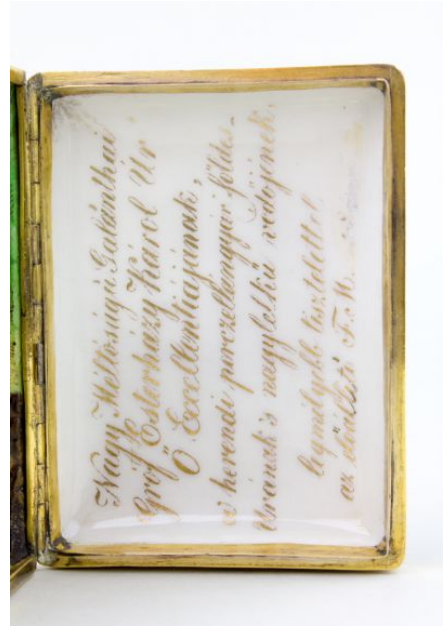 Nagy Méltóságú Galánthai
Gróf Esterházy Károl Úr
Ő Excellentiájának,
a herendi porczellángyár földes-
Urának 's nagylelkű védőjének,
legmélyebb tisztelettel
az F. M.